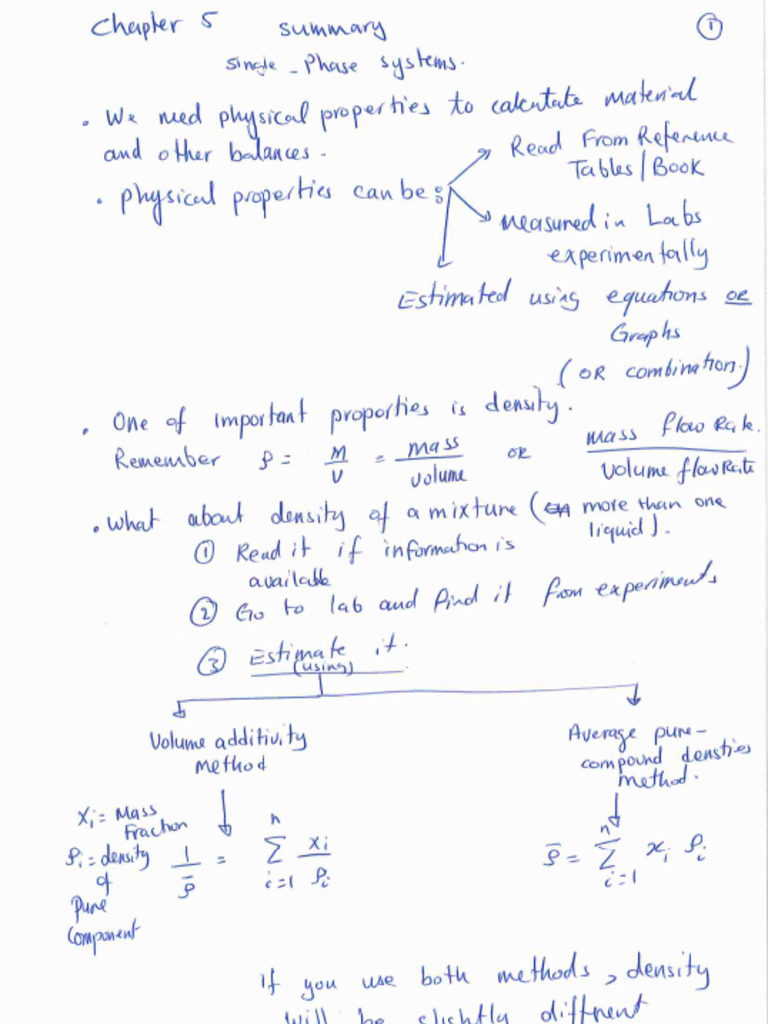 Chapter 5 summary ①
Single - Phase systems.
• We need physical properties to calculate material
and other balances.
• physical properties can be:
Read From Reference
Tables/Book
measured in Labs
experimentally
Estimated using equations OR
Graphs
(OR combination.)
• One of important properties is density.
Remember ρ = M/V = mass/volume OR mass flow Rate./volume flowRate
• What about density of a mixture (more than one
liquid).
① Read it if information is
available
② Go to lab and find it from experiments
③ Estimate it.
(using)
Volume additivity
method
Average pure-
compound densties
method.
Xi = Mass
Fraction
ρi = density
of
pure
Component
1/ρ̄ = Σ(i=1 to n) xi/ρi
ρ̄ = Σ(i=1 to n) xi ρi
If you use both methods, density
will be slightly different